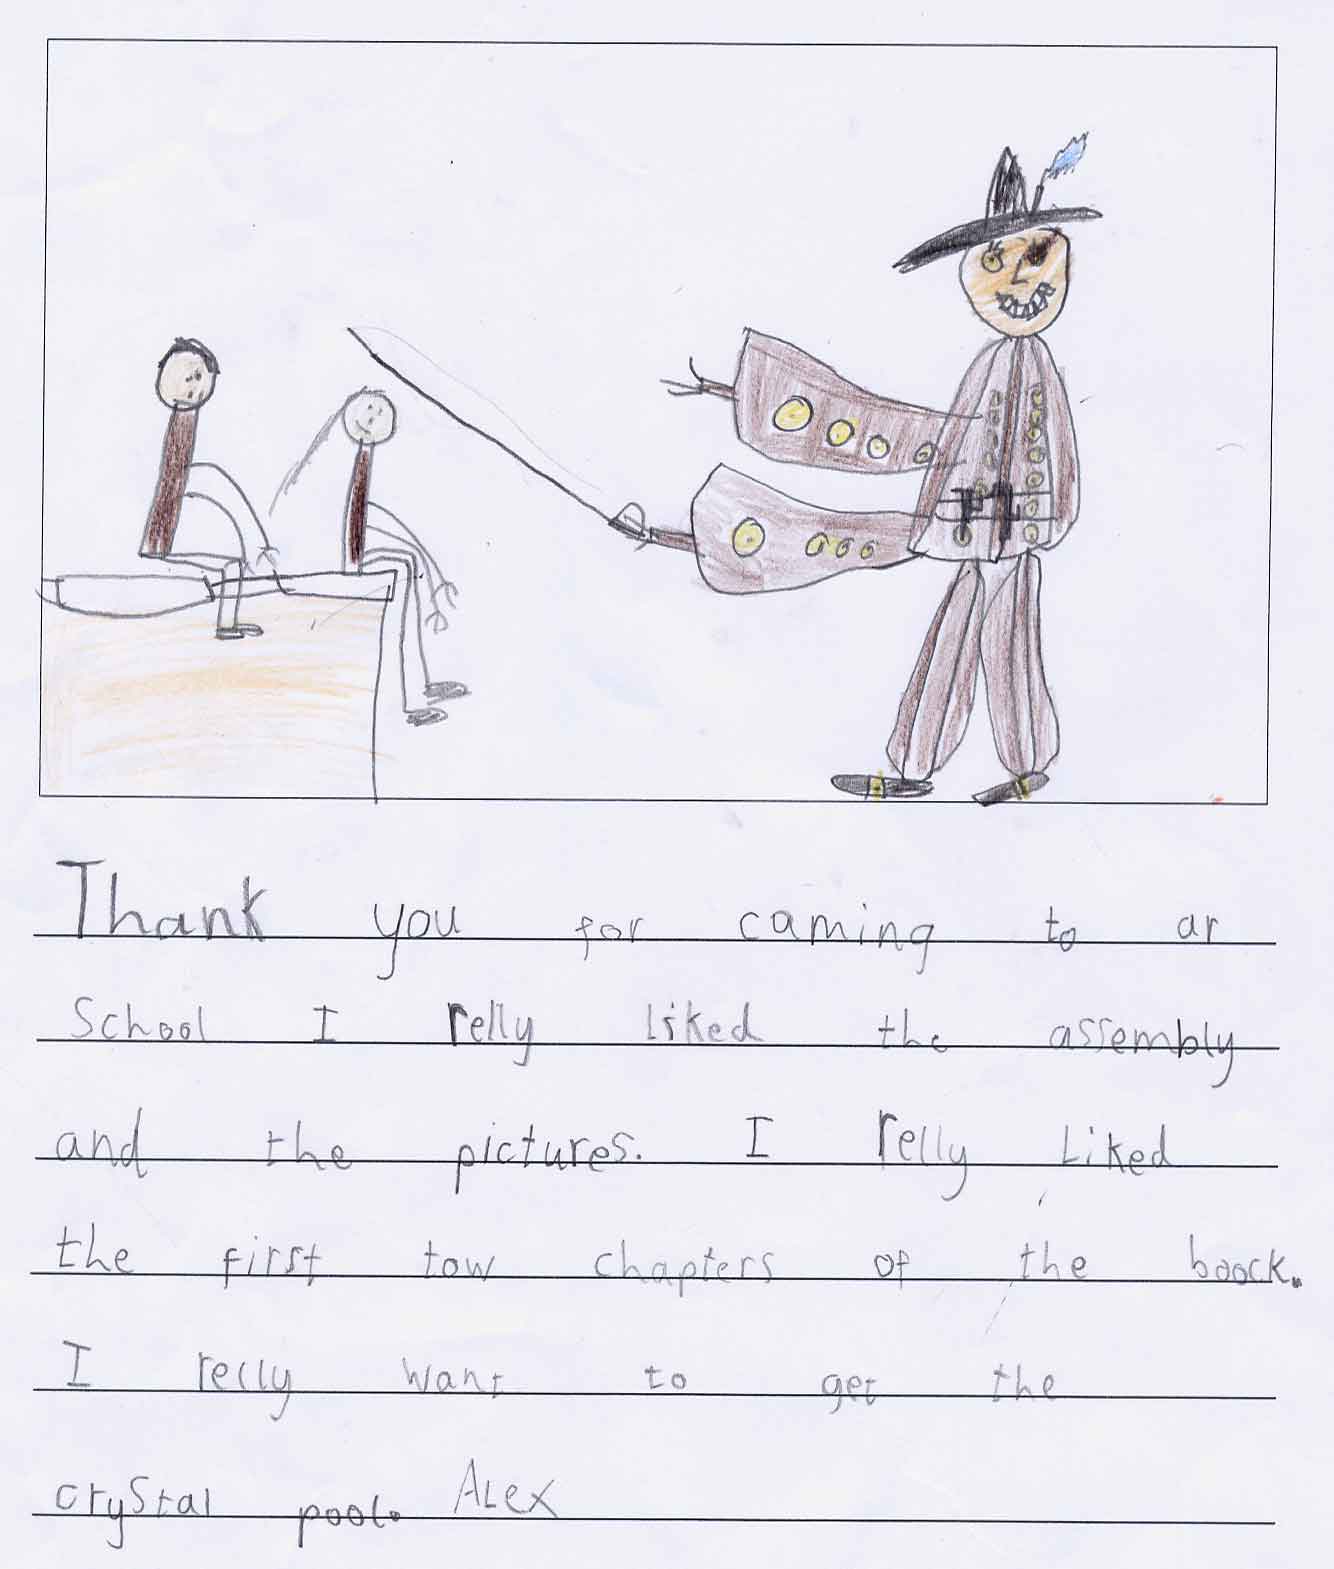 Thank you for caming to ar
School I relly liked the assembly
and the pictures. I relly Liked
the first tow chapters of the boock.
I relly want to get the
crystal pool. ALex